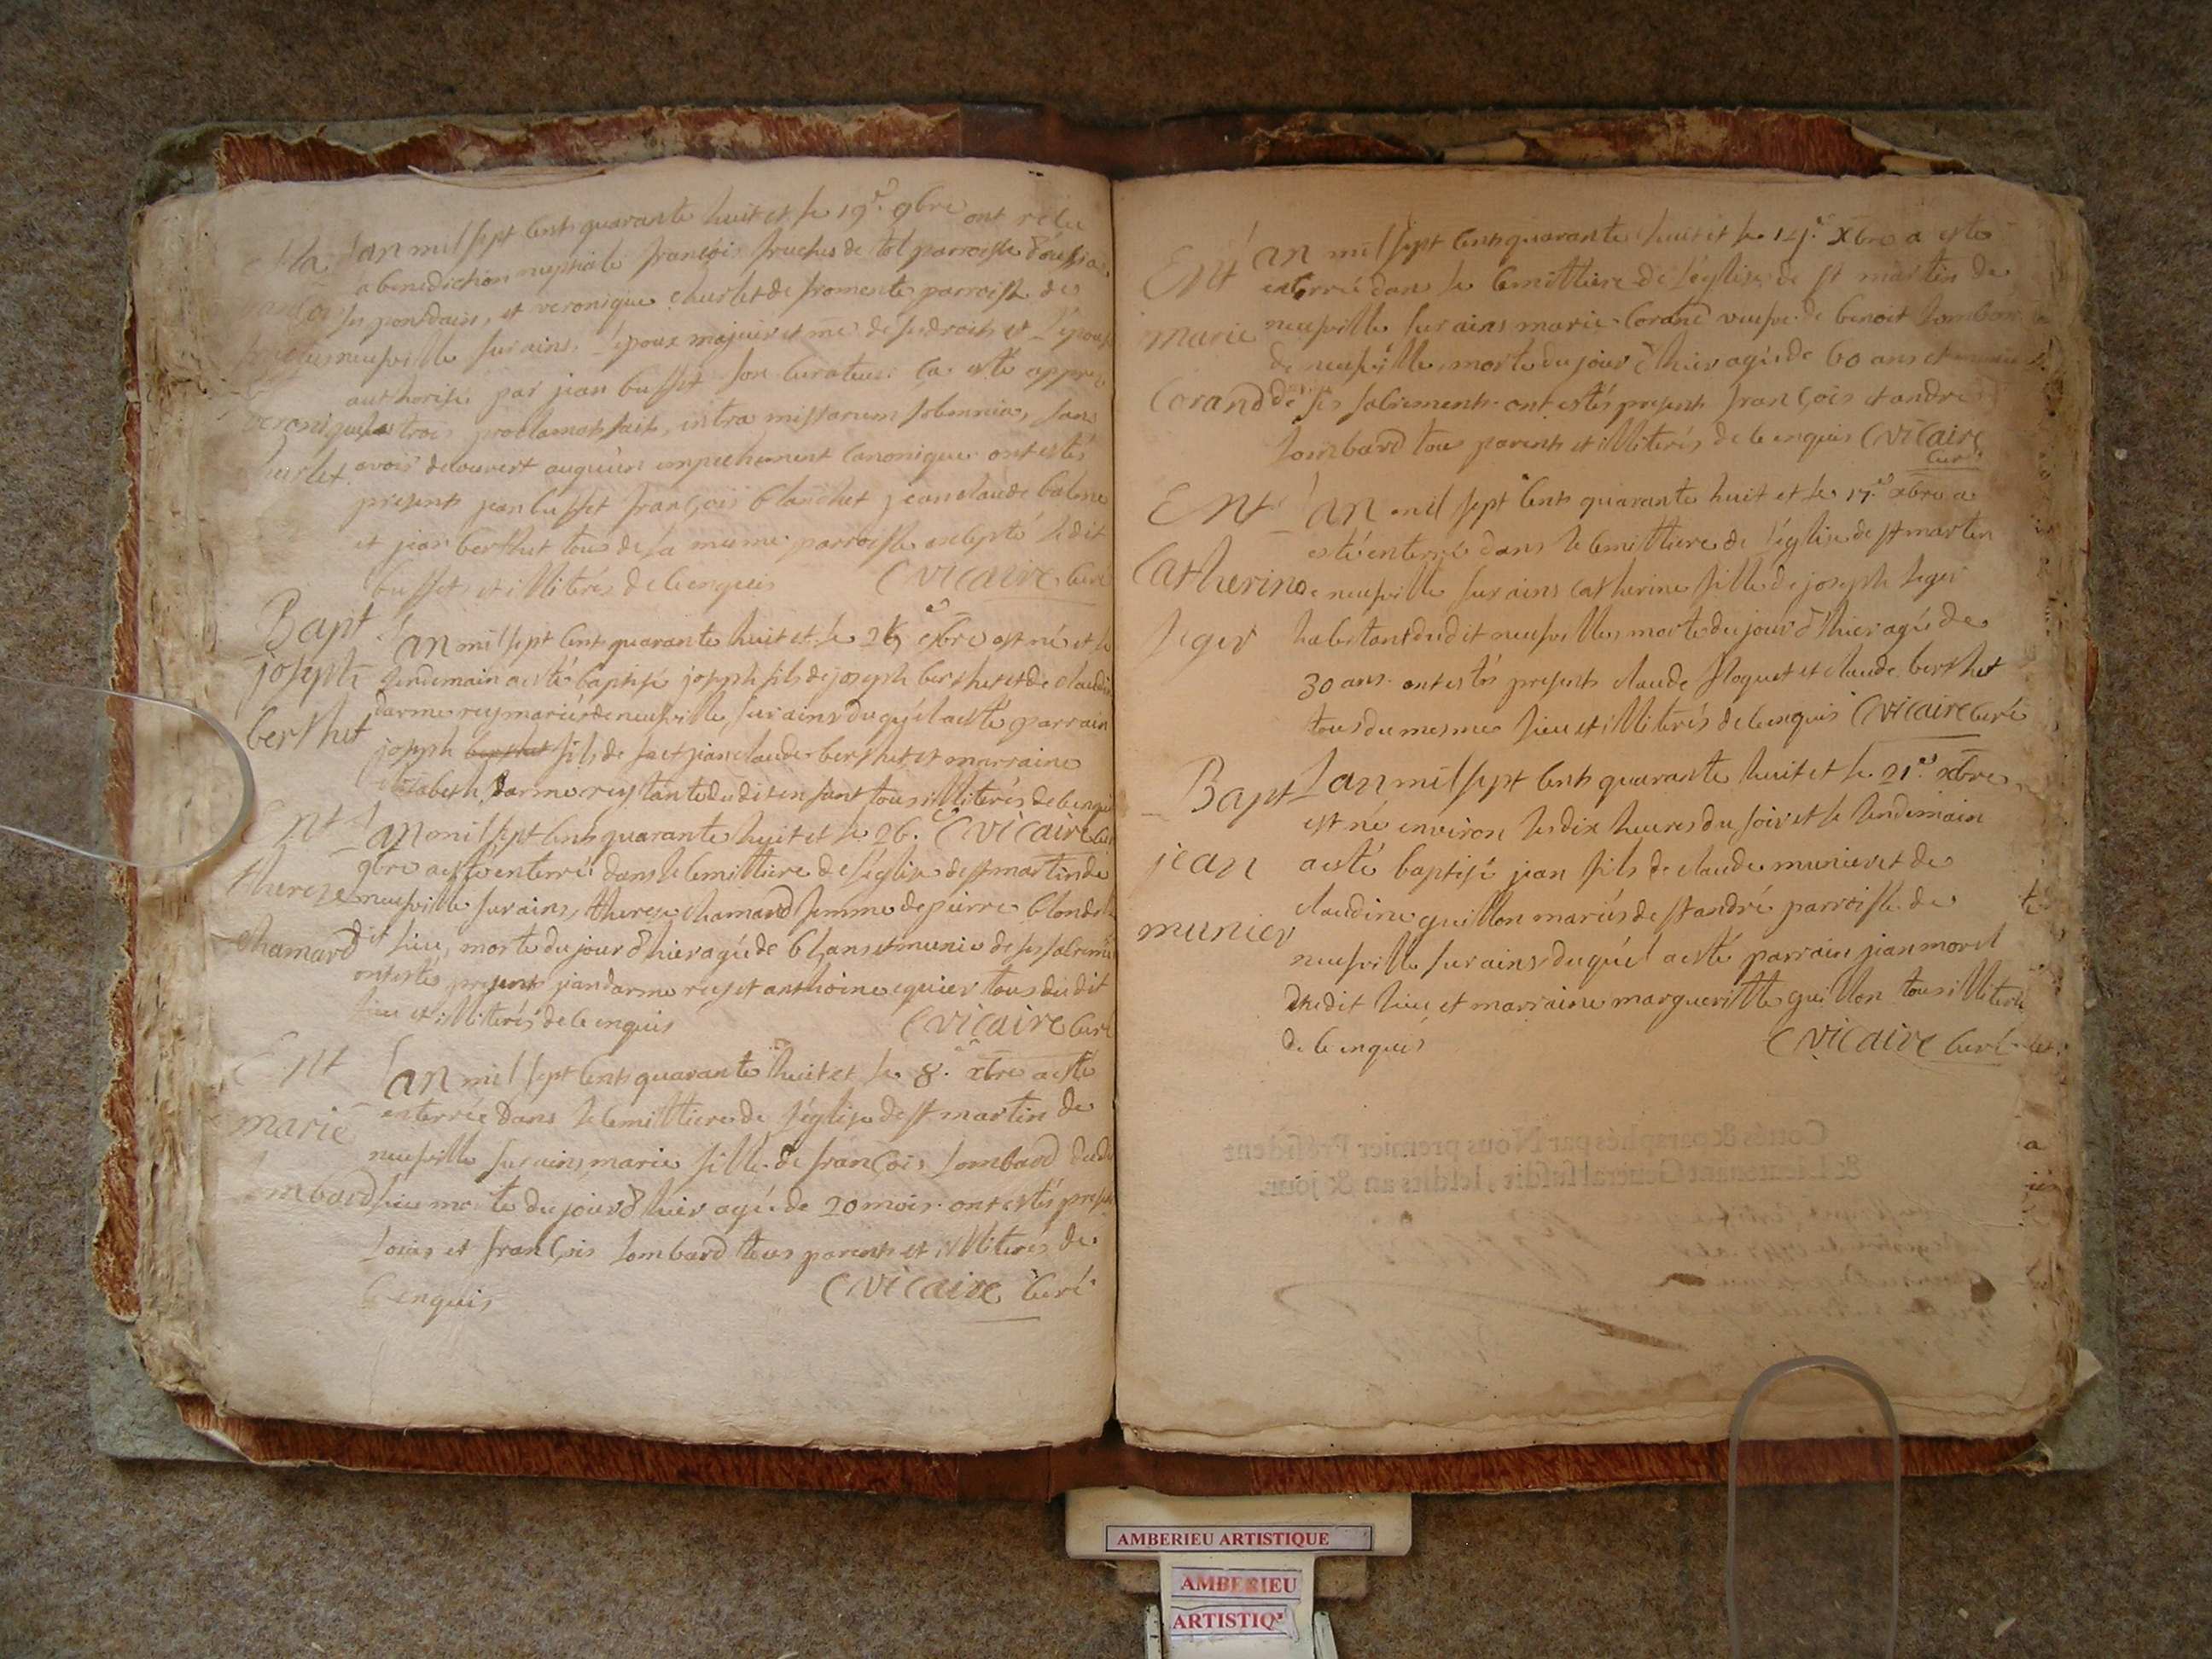 L'an mil sept cents quarante huit et le 19e 9bre ont receu
la benediction nuptiale françois
du pondain, et veronique churlet de fromente parroisse de
neufville sur ains, l'epoux majeur et me de ses droits et l'epouse
authorisée par jean buffet son curateur ça esté
veronique
les trois proclamats faits, intra missarum solemnia, sans
churlet
avoir decouvert auqu'un empechement canonique ont estés
presents jean buffet françois blanchet jean claude balme
et jean berthet tous de la meme parroisse excepté ledit
buffet et illiterés de ce enquis Cvicaire curé
Bapt
joseph
berthet
L'an mil sept cent quarante huit et le est né et le
lendemain a esté baptisé joseph fils de joseph berthet et de claudine
darmerey mariés de neufville sur ains duquel a esté parrain
joseph berthet fils de feu jean claude berthet et marraine
elisabeth darmerey tante dudit enfant tous illiterés de ce enquis
Cvicaire curé
Ent
therese
chamard
L'an mil sept cents quarante huit et le 26.e
9bre a esté enterré dans le cemittiere de l'église de st martin de
neufville sur ains, therese chamard femme de pierre
dit lieu, morte du jour d'hier agée de ans et munie de ses
ont estés presents jean darmerey et anthoine equier tous dudit
lieu et illiterés de ce enquis Cvicaire curé
Ent
marie
lombard
L'an mil sept cents quarante huit et le 8.e xbre a esté
enterrée dans le cemittiere de l'église de st martin de
neufville sur ains, marie fille de françois lombard dudit
lieu morte du jour d'hier agée de 20 mois ont estés presents
Louis et françois lombard tous parents et illiterés de
ce enquis Cvicaire curé
Ent
marie
Corand
L'an mil sept cents quarante huit et le xbre a esté
enterrée dans le cemittiere de l'église de st martin de
neufville sur ains marie Corand veufve de benoit lombard
de neufville, morte du jour d'hier agée de 60 ans et munie
de ses sacrements ont estés presents françois et andré
lombard tous parents et illiterés de ce enquis Cvicaire
curé
Ent
Catherine
leger
L'an mil sept cents quarante huit et le 17.e xbre a
esté enterrée dans le cemittiere de l'église de st martin
de neufville sur ains catherine fille de joseph leger
habitant dudit neufville morte du jour d'hier agée de
30 ans. ont estés presents claude floquet et claude berthet
tous du mesme lieu et illiterés de ce enquis Cvicaire curé
Bapt
jean
munier
L'an mil sept cents quarante huit et le 21.e xbre
est né environ les dix heures du soir et le lendemain
a esté baptisé jean fils de claude munier et de
claudine guillon mariés de st andré parroisse de
neufville sur ains duquel a esté parrain jean morel
dudit lieu et marraine margueritte guillon tous illiterés
de ce enquis Cvicaire curé
Cottés & paraphés par Nous premier Président
& Lieutenant General susdit, lesdits an & jour.
AMBERIEU ARTISTIQUE
AMBERIEU
ARTISTIQ